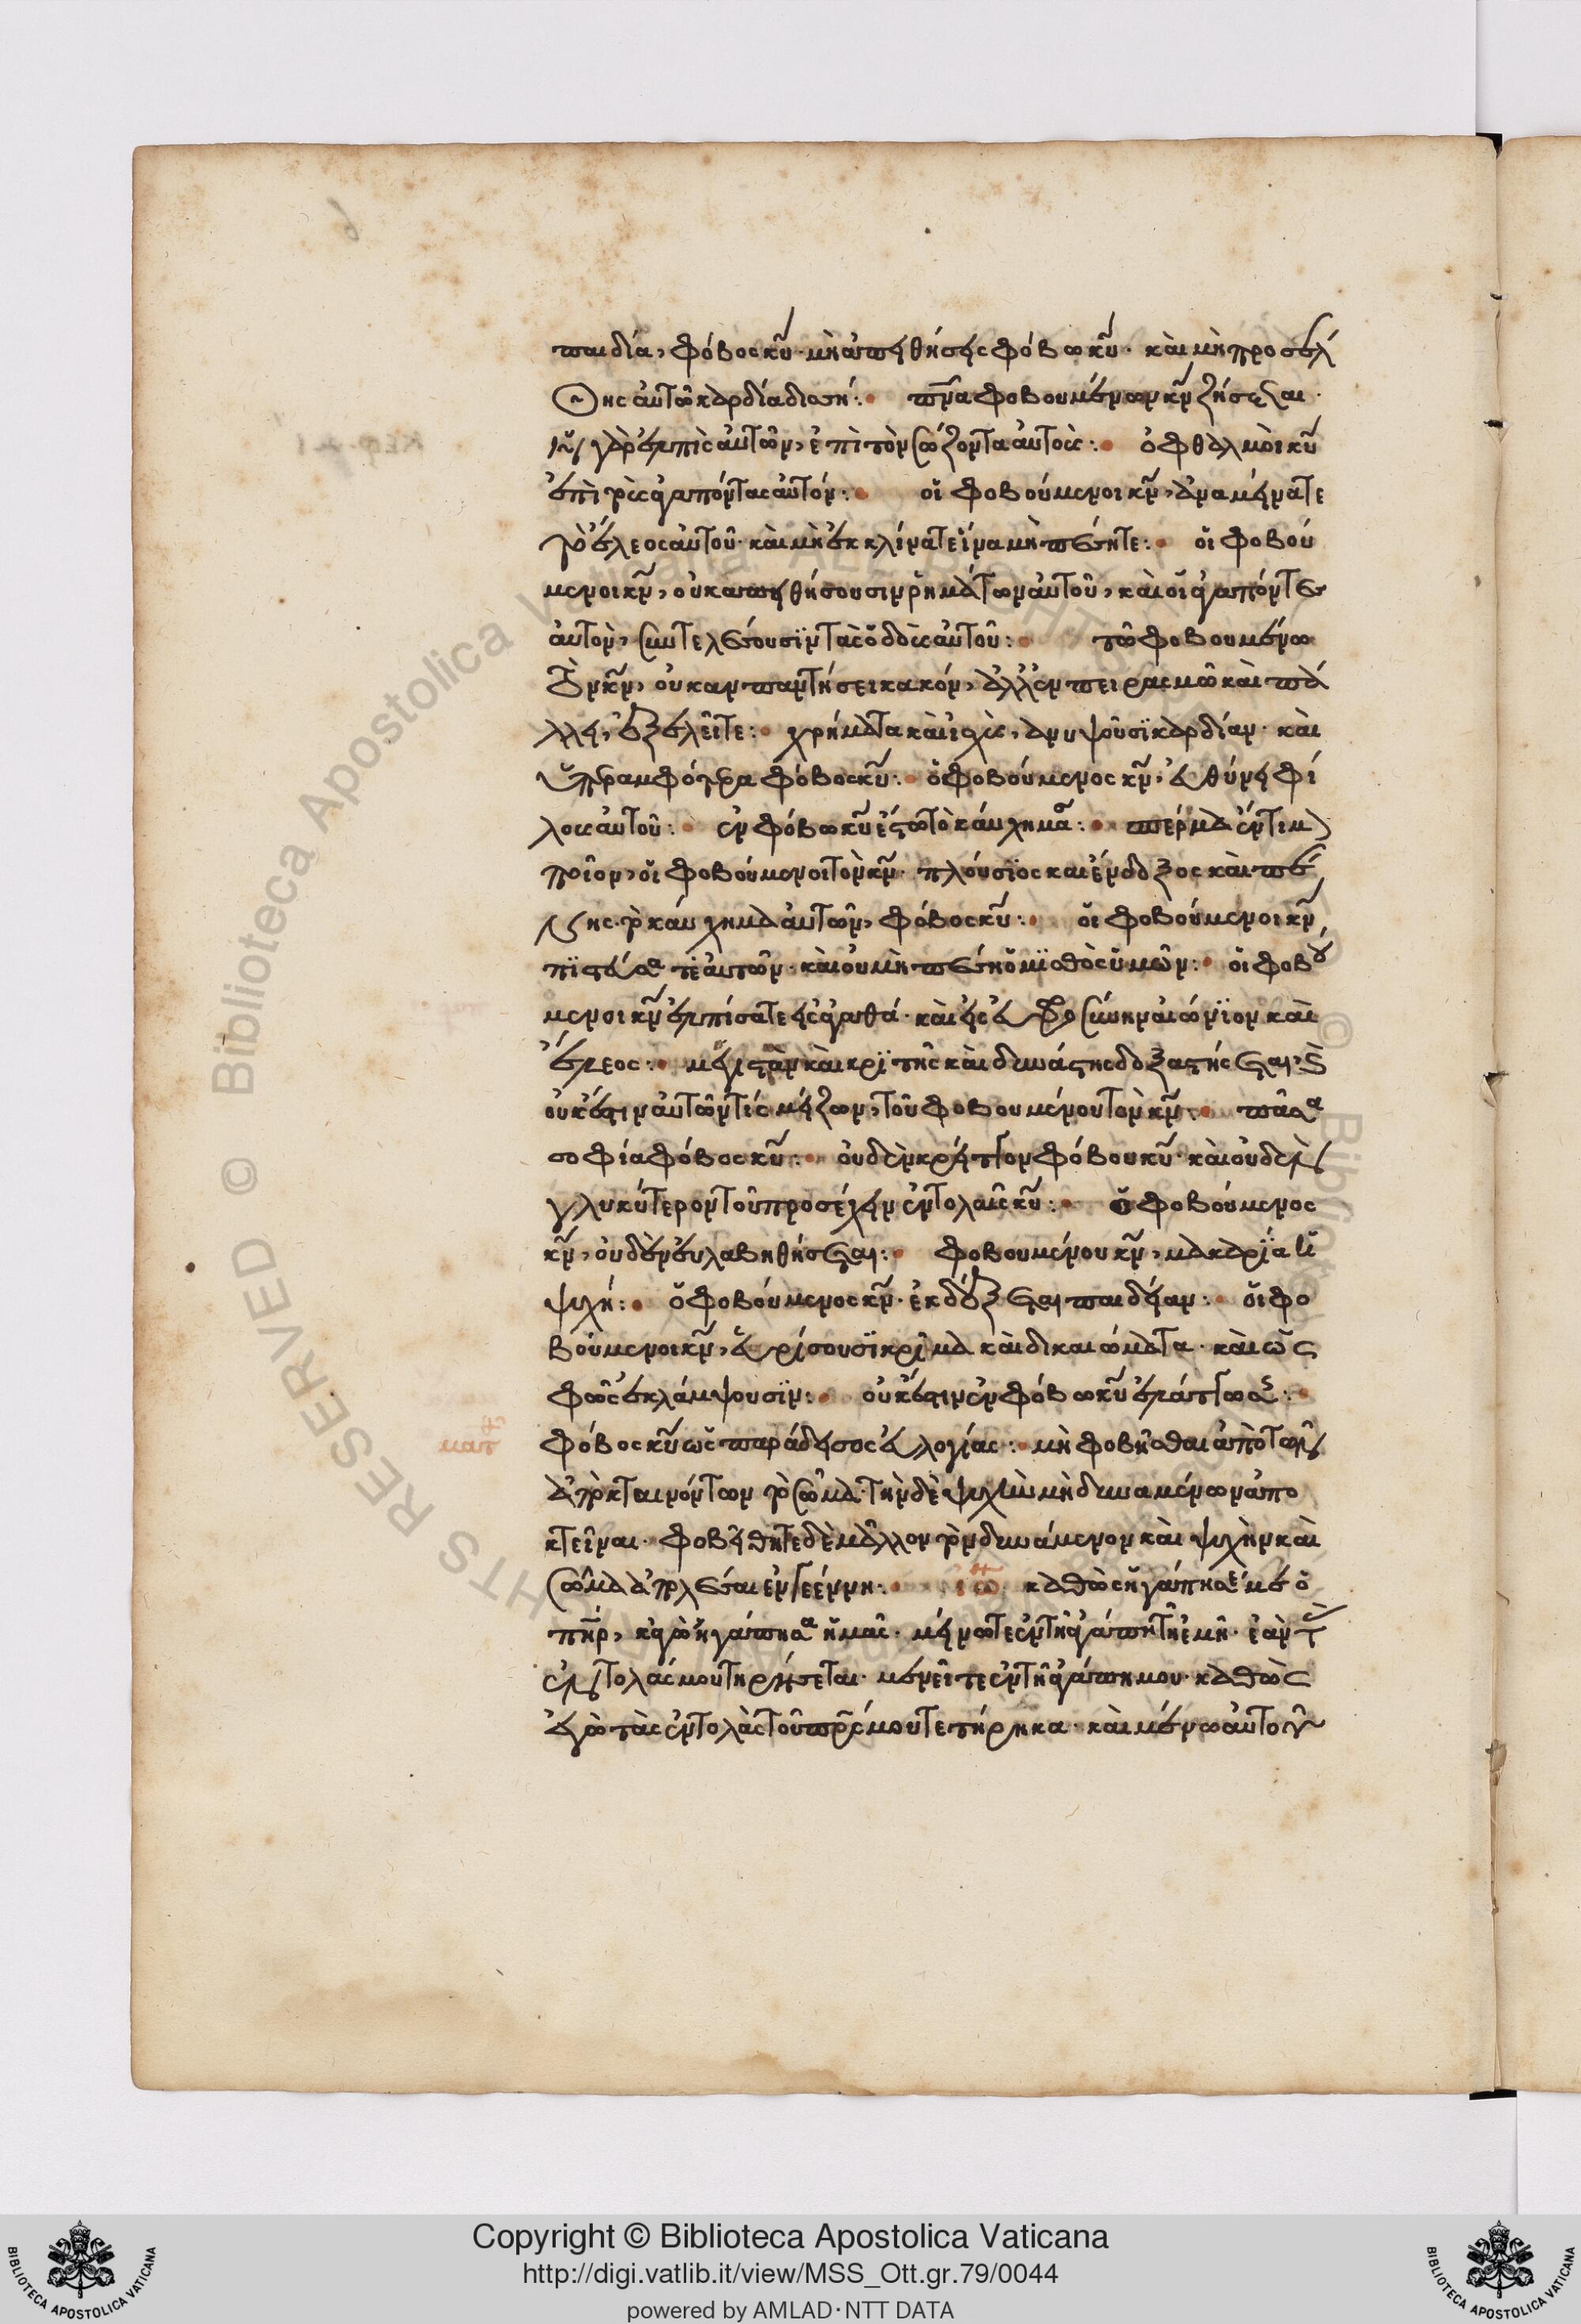 παιδία, φόβος κυ̅· μὴ ἀπειθήσεις φόβω κυ̅· καὶ μὴ προσέλ
θης αὐτῶ καρδία δισσή:· πν̅α φοβουμένων κν̅ ζήσεται·
γὰρ ἐλπὶς αὐτῶν, ἐπὶ τὸν σώζοντα αὐτούς:· ὀφθαλμοὶ κυ̅
ἐπὶ τοὺς ἀγαπόντας αὐτόν:· οἱ φοβούμενοι κν̅, ἀναμείνατε
τὸ ἔλεος αὐτοῦ· καὶ μὴ ἐκκλίνατε ἵνα μὴ πέσητε:· οἱ φοβού
μενοι κν̅, οὐκ ἀπειθήσουσιν ῥημάτων αὐτοῦ, καὶ οἱ ἀγαπόντες
αὐτὸν, συντελέσουσϊν τὰς ὁδοὺς αὐτοῦ:· τῶ φοβουμένω
τὸν κν̅, οὐκ ἀπαντήσει κακόν, ἀλλ' ἐν πειρασμῶ καὶ πά
λλει, ἐξελεῖτε:· χρήματα καὶ ἰσχὺς, ἀνυψοῦσϊ καρδίαν· καὶ
ὑπὲρ ἀμφότερα φόβος κυ̅:· ὁ φοβούμενος κν̅, εὐθύνει φί
λους αὐτοῦ:· ἐν φόβω κυ̅ ἔστω τὸ καύχημα:· σπέρμα ἔντιμ
ποῖον, οἱ φοβούμενοι τὸν κν̅· πλούσϊος καὶ ἔνδοξος καὶ
τὸ καύχημα αὐτῶν, φόβος κυ̅:· οἱ φοβούμενοι κν̅,
πϊστεύσατε αὐτῶν· καὶ οὐ μὴ πέση ὁ μϊσθὸς ὑμῶν:· οἱ φοβού
μενοι κν̅ ἐλπίσατε εἰς ἀγαθά· καὶ εἰς εὐφροσύνην αἰώνϊον καὶ
ἔλεος:· μεγιστὰν καὶ κριτὴς καὶ δυνάστης δοξαστήσεται,
οὐκ ἔστιν αὐτῶν τίς μείζων, τοῦ φοβουμένου τὸν κν̅:· πᾶσα
σοφία φόβος κυ̅:· οὐδὲν κρεῖττον φόβου κυ̅· καὶ οὐδὲν
γλυκύτερον τοῦ προσέχειν ἐντολαῖς κυ̅:· ὁ φοβούμενος
κν̅, οὐδὲν εὐλαβηθήσεται:· φοβουμένου κν̅, μακαρϊα ἡ
ψυχή:· ὁ φοβούμενος κν̅· ἐκδέξεται παιδείαν:· οἱ φο
βούμενοι κν̅, εὑρίσουσϊ κρίμα καὶ δικαιώματα· καὶ ὡς
φῶς ἐκλάμψουσϊν:· οὐκ ἔστιν ἐν φόβω κυ̅ ἐλάττωσις:·
ματθ φόβος κυ̅ ὡς παράδεισος εὐλογίας:· μὴ φοβῆσθαι ἀπὸ τῶν
ἀποκταινόντων τὸ σῶμα· τὴν δὲ ψυχὴν μὴ δυναμένων ἀπο
κτεῖναι· φοβείθητε δὲ μᾶλλον τὸν δυνάμενον καὶ ψυχὴν καὶ
σῶμα ἀπολέσαι ἐν γεέννη:· ιω καθὼς ἠγάπησέ με ὁ
πη̅ρ, κἀγὼ ἠγάπησα ἡμᾶς· μείνατε ἐν τῆ ἀγάπη τῆ ἐμῆ· ἐὰν τὰς
ἐντολάς μου τηρήσεται· μενεῖτε ἐν τῆ ἀγάπη μου· καθὼς
ἐγὼ τὰς ἐντολὰς τοῦ πρ̅ς μου τετήρηκα· καὶ μένω αὐτοῦ
Copyright © Biblioteca Apostolica Vaticana
http://digi.vatlib.it/view/MSS_Ott.gr.79/0044
powered by AMLAD·NTT DATA